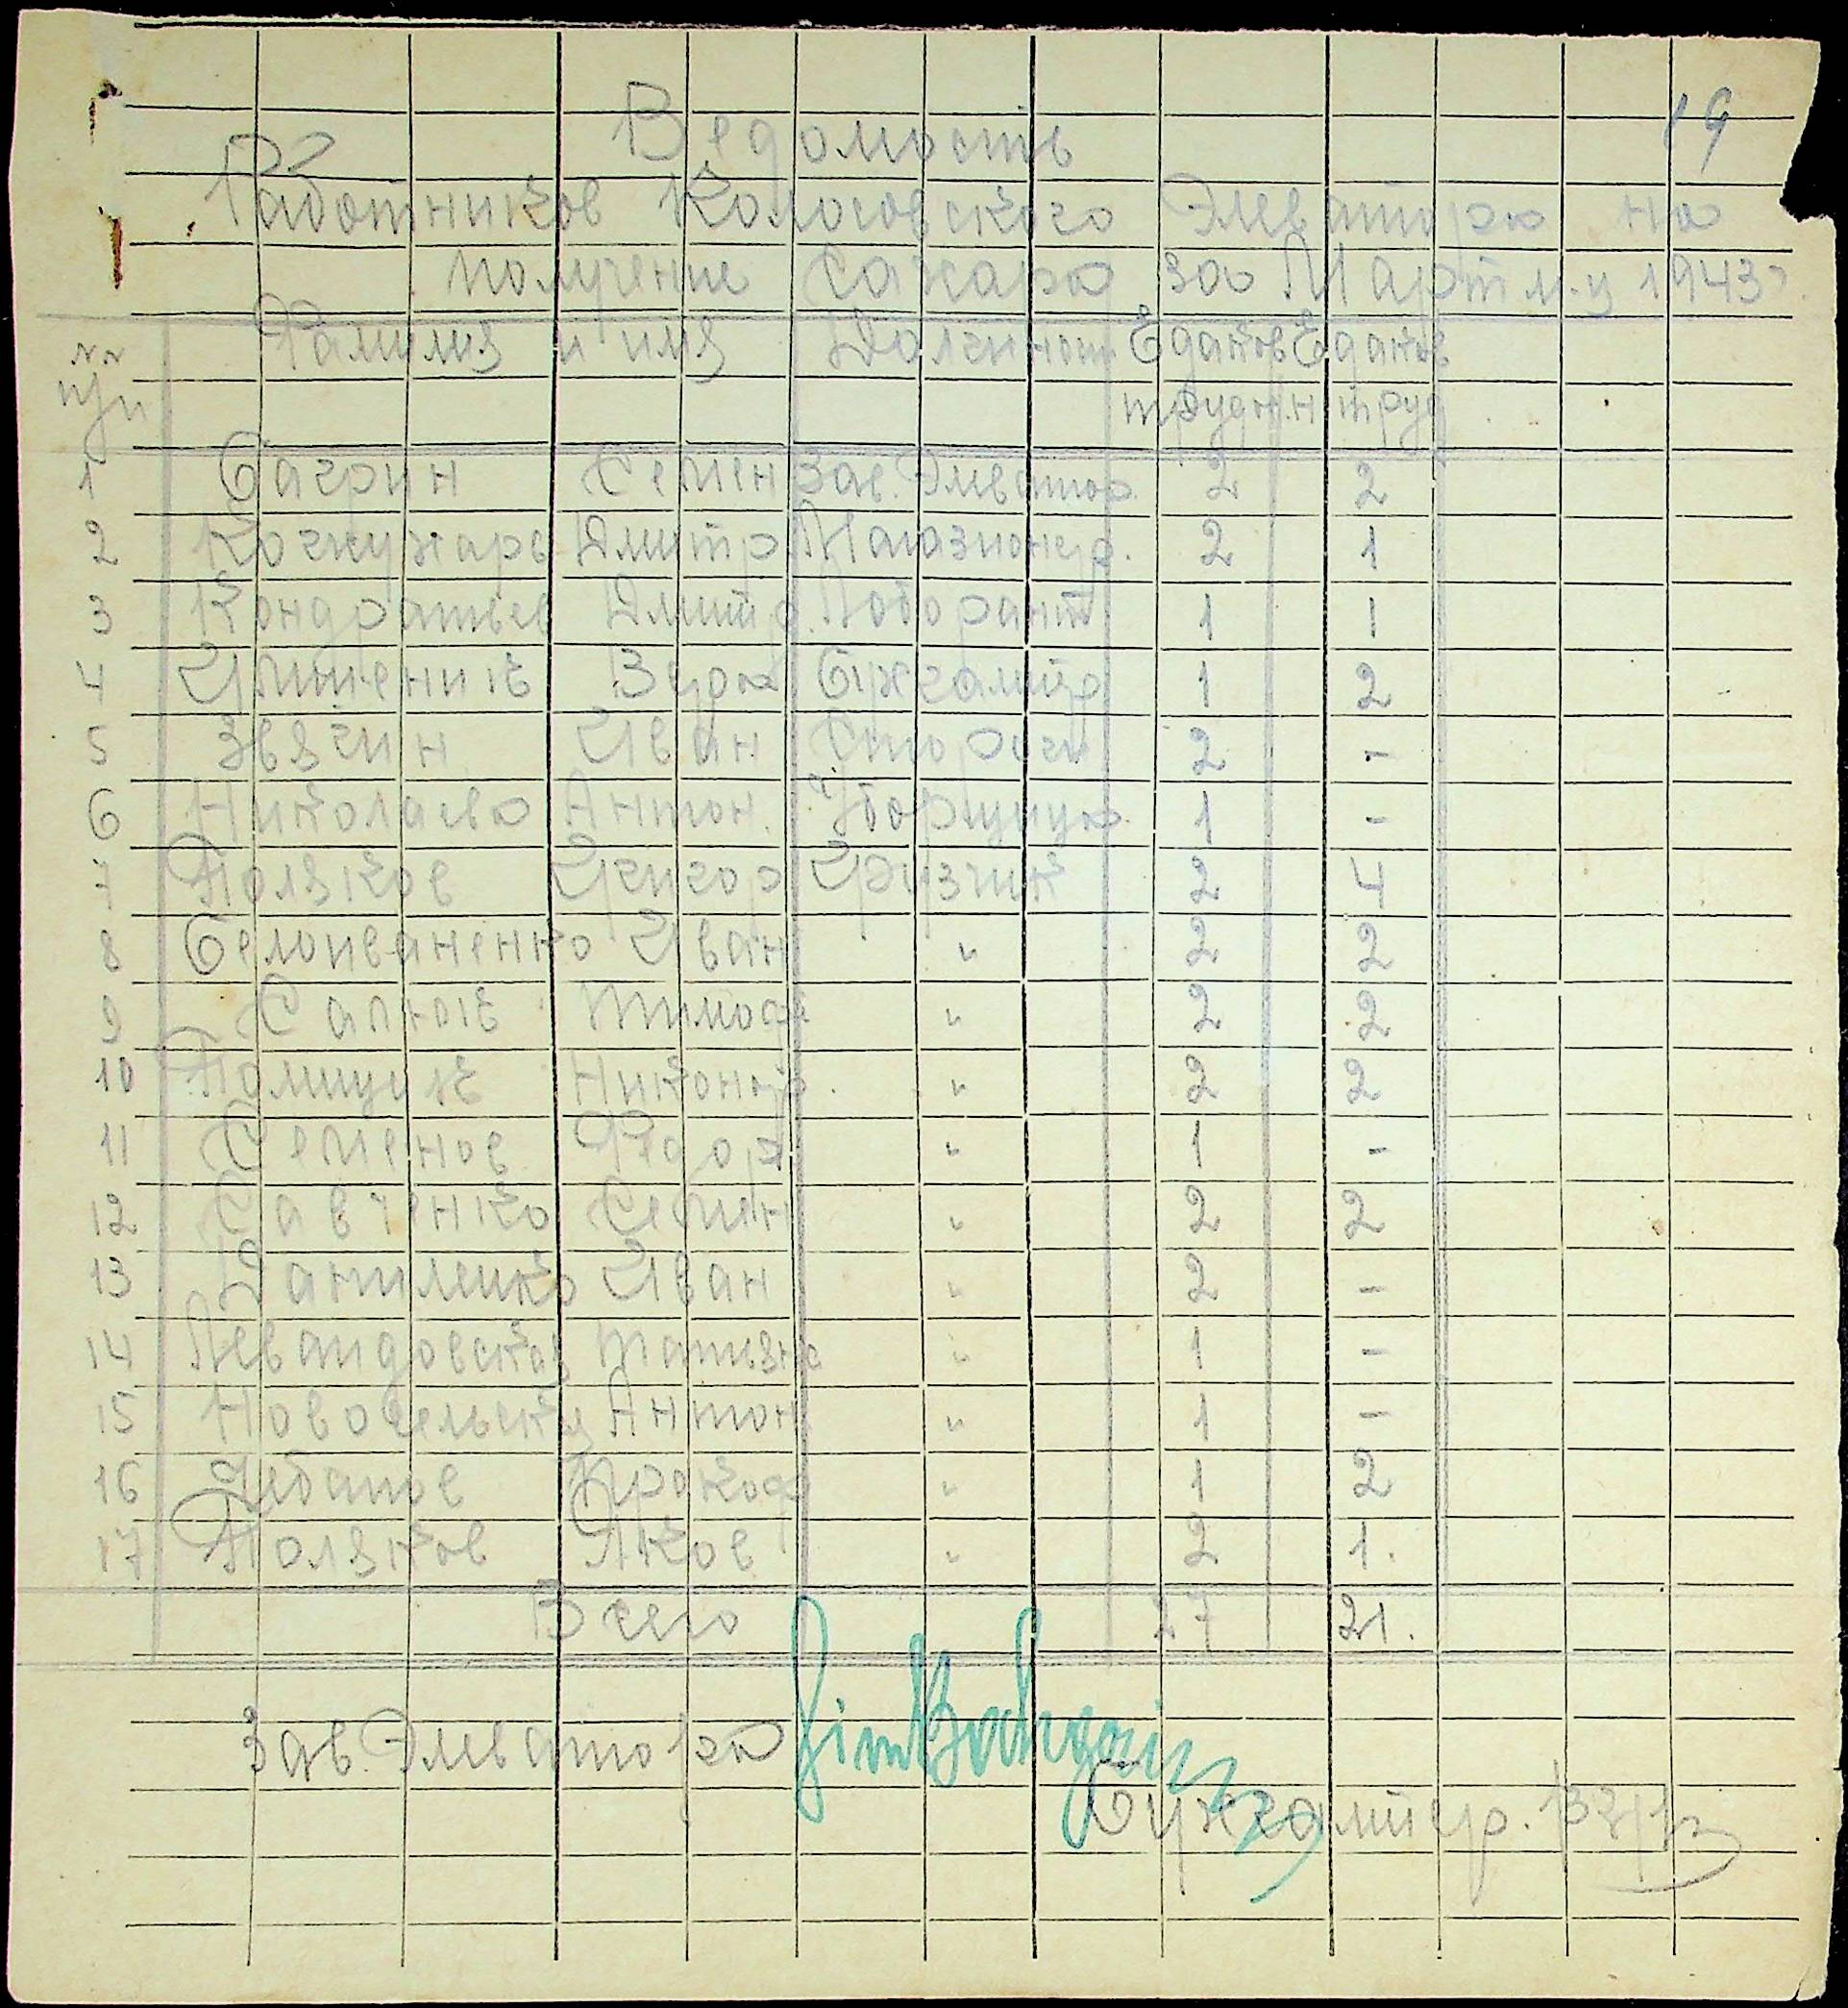 19
Ведомость
Работников Колосовского Элеватора на
получение Сахара за Март м-ц 1943 г.
№№ п/п Фамилия и имя Должност Едаков трудн. Едаков н труд
1 Багрин Семен Зав. Элеватор. 2 2
2 Кочкужарь Дмитр Магазионер. 2 1
3 Кондратьев Дмитр. Лоборант 1 1
4 Вера Бухгалтер 1 2
5 Звягин Иван Сторож 2 -
6 Николаева Антон. Уборщица 1 -
7 Поляков Григор Грузчик 2 4
8 Белоиваненко Иван " 2 2
9 Сапнок Тимоф " 2 2
10 Полищук Никонор. " 2 2
11 Семенов Федор " 1 -
12 Савченко Семен " 2 2
13 Иван " 2 -
14 Левандовская Татьяна " 1 -
15 Антон " 1 -
16 Прокоф " 1 2
17 Поляков Яков " 2 1.
Всего 27 21.
Зав. Элеватора
Бухгалтер.